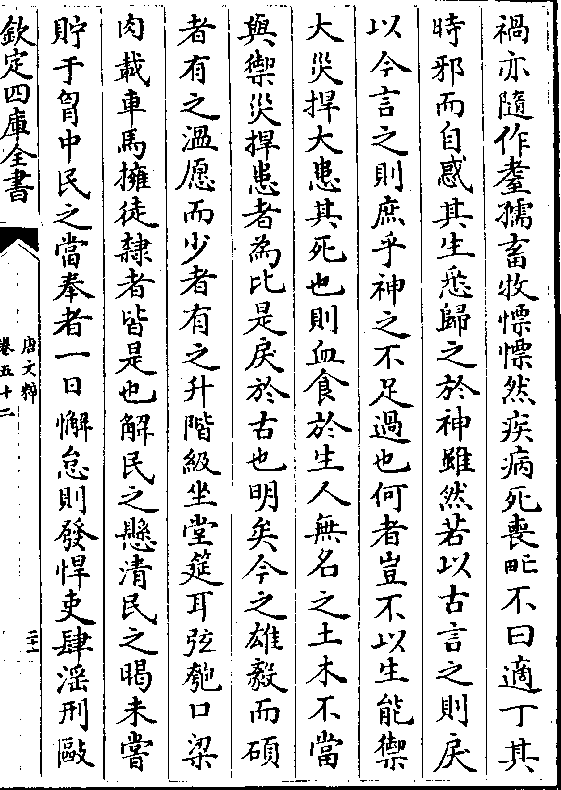 禍亦隨作耋孺畜牧慄慄然疾病死喪甿不曰適丁其
時邪而自惑其生悉歸之於神雖然若以古言之則戾
以今言之則庶乎神之不足過也何者豈不以生能禦
大災捍大患其死也則血食於生人無名之土木不當
與禦災捍患者為比是戾於古也明矣今之雄毅而碩
者有之溫愿而少者有之升階級坐堂筵耳弦匏口梁
肉載車馬擁徒隸者皆是也解民之懸清民之暍未嘗
貯于胷中民之當奉者一日懈怠則發悍吏肆淫刑敺
欽定四庫全書
唐文粹
卷五十二